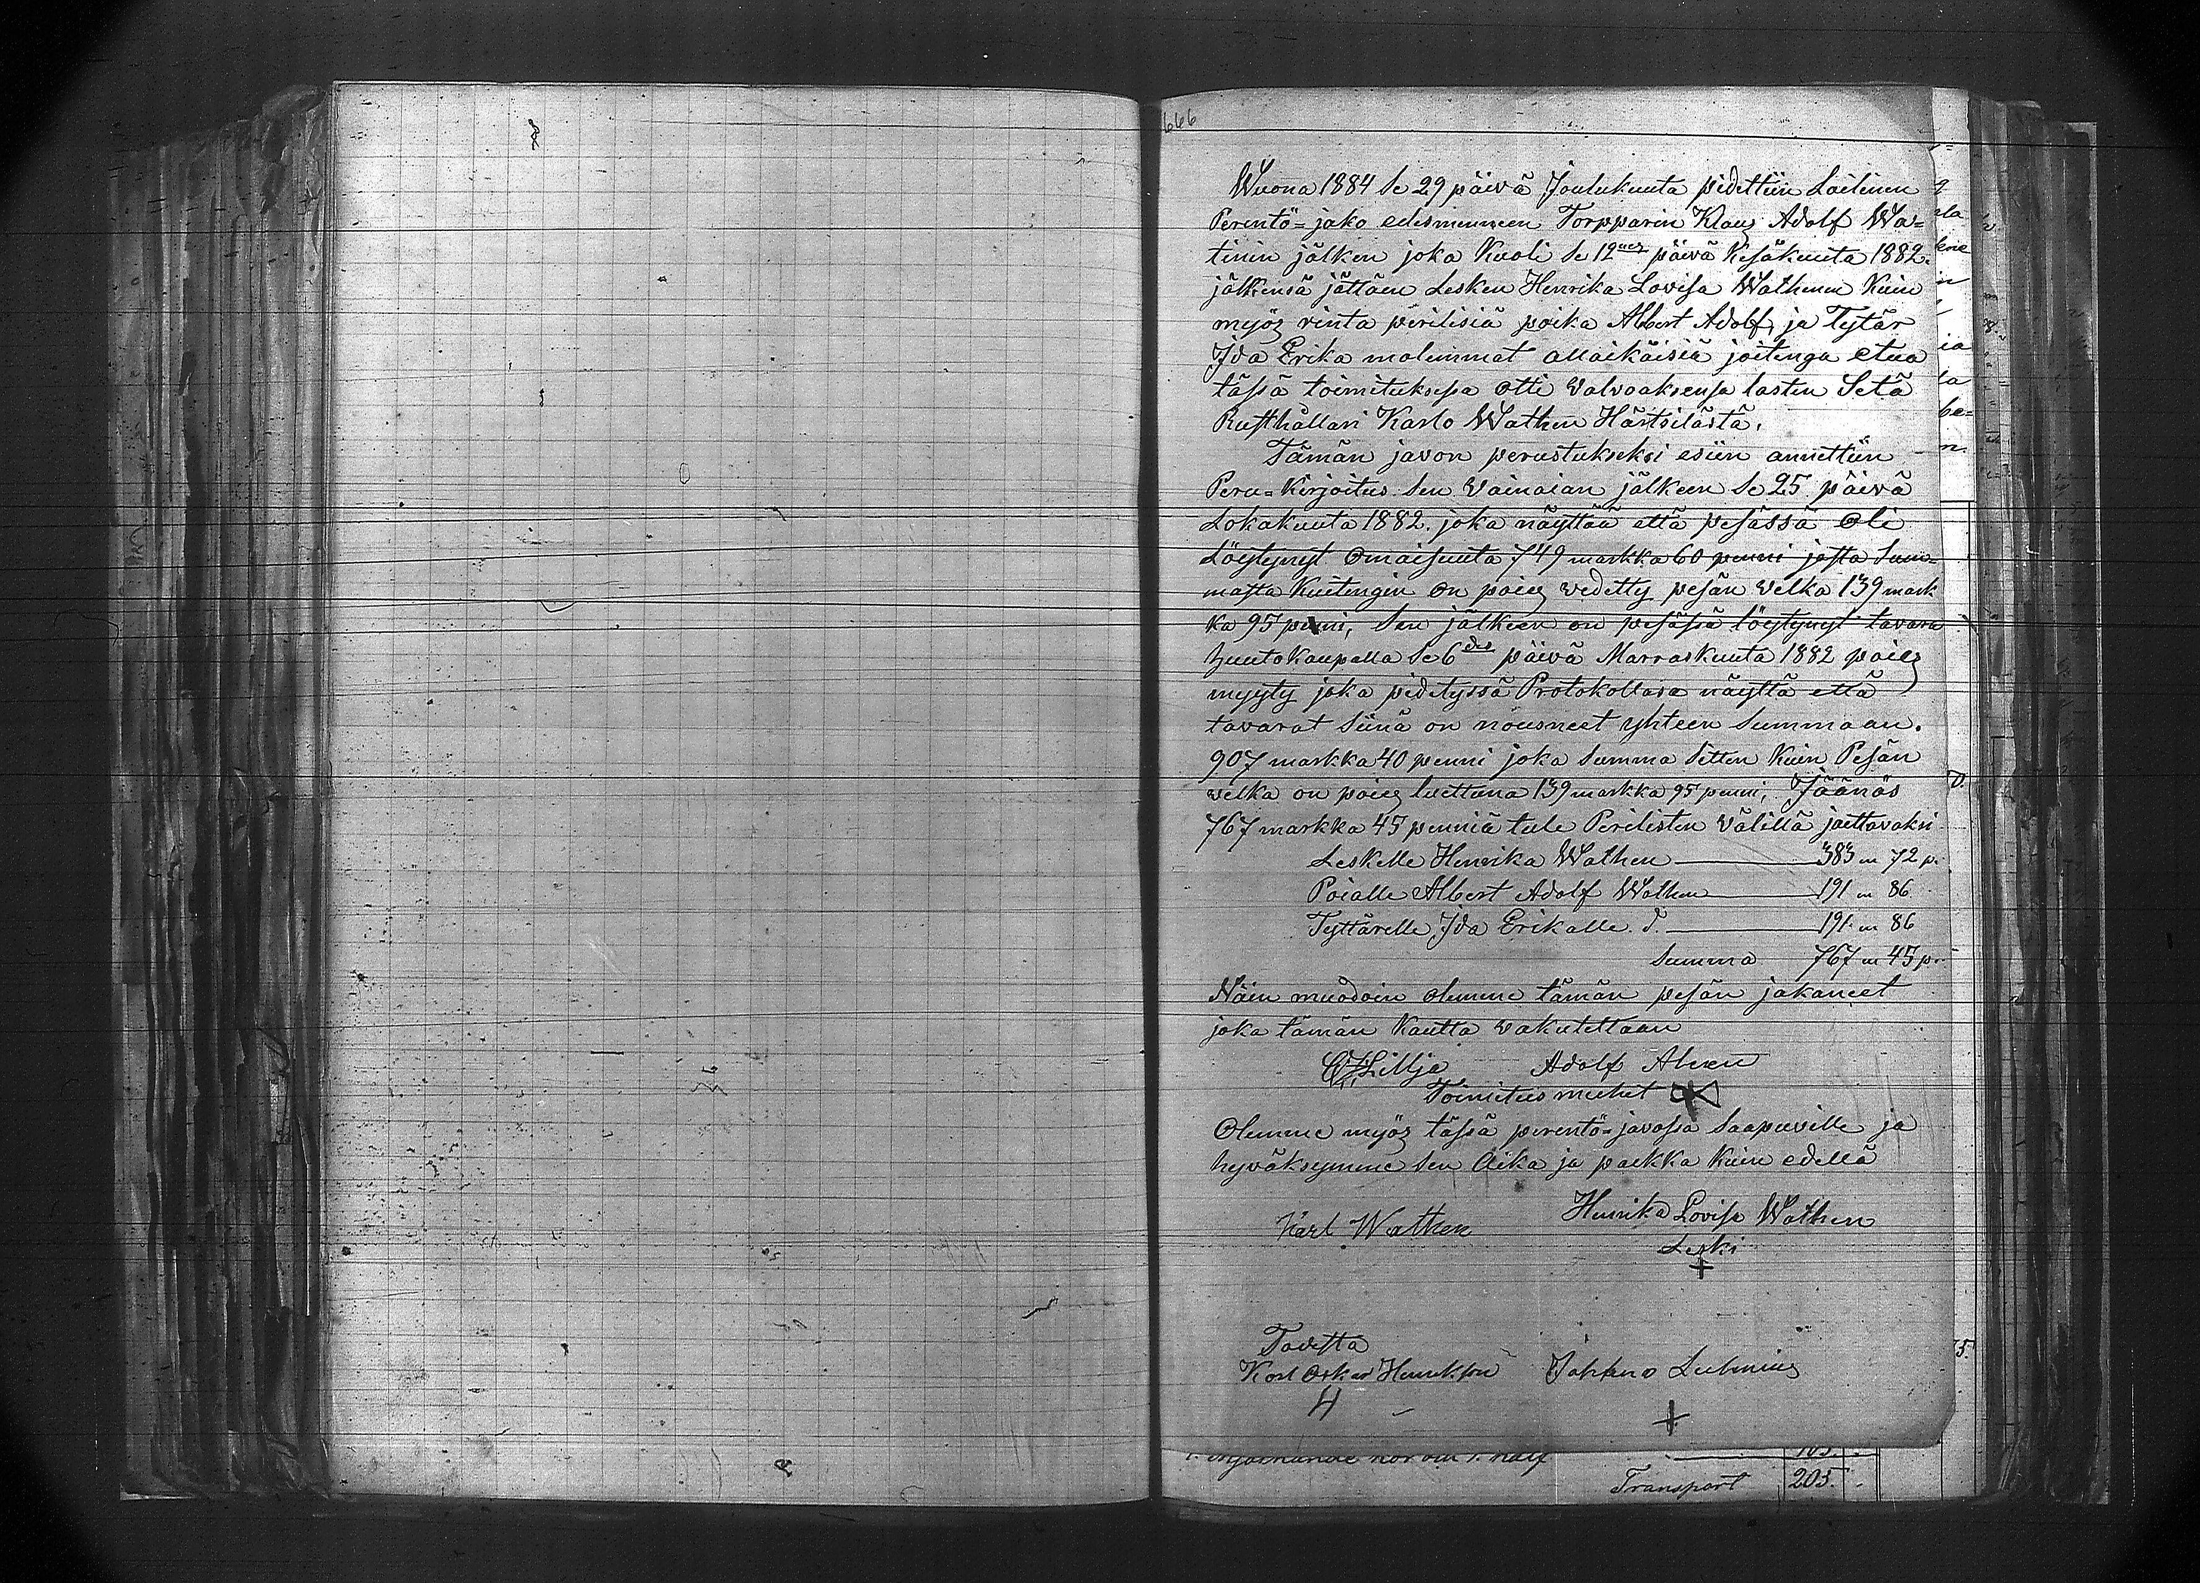 666
Wuona 1884 Se 29 päivä Joulukuuta pidettiin Lailinen
Perentö=jako edesmenneen Torpparin Klauz Adolf Wa=
tinin jälken joka Kuoli Se 12 päivä Kesäkuuta 1882.
jälkensä jättäen Lesken Henrika Lovisa Wathenen Kuin
myöz rinta perilisiä poika Albert Adolf, ja Tytär
Ida Erika molemmat allaikäisiä joitenga etua
tässä toimituksessa otti valvoaksensa lasten Setä
Rusthållari Karlo Wathen Härtsilästä.
Tämän javon perustukseksi esiin annettiin
Peru=Kirjoitus Sen Vainaian jälkeen Se 25 päivä
Lokakuuta 1882. joka näyttää että pesässä Oli
Löytynyt Omaisuuta 749 markka 60 penni josta Sum=
masta Kuitengin On poiez vedetty pesän Velka 139 mark
ka 95 penni, Sen jälkeen on pesässä löytynyt tavara
huutokaupalla Se 6 des päivä Marraskuuta 1882 poiez
myyty joka pidetyssä Protokollasa näyttä että
tavarat Siinä on nousneet yhteen Summaan.
907 markka 40 penni joka Summa Sitten Kuin Pesän
velka on poiez luettuna 139 markka 95 penni, Jäänös
767 markka 45 penniä tule Perilisten Välillä jaettavaksi
Leskelle Henrika Wathen 383 m 72 p.
Poialle Albert Adolf Wathen 191 m 86
Tyttärelle Ida Erikalle. d. 191. m 86
Summa 767 m 45 p.
Näin muodoin Olemme tämän pesän jakaneet
joka tämän Kautta vakutettaan
Lillja Adolf Ahlen
Toimitus miehet
Olemme myöz tässä perentö=javossa Saapuville ja
hyväksymme Sen Aika ja paikka Kuin edellä
Karl Wathen Henrika Lovisa Wathen
Leski
+
Todistta
Karl Oskar Henrikson Johan
+
Transport 205.